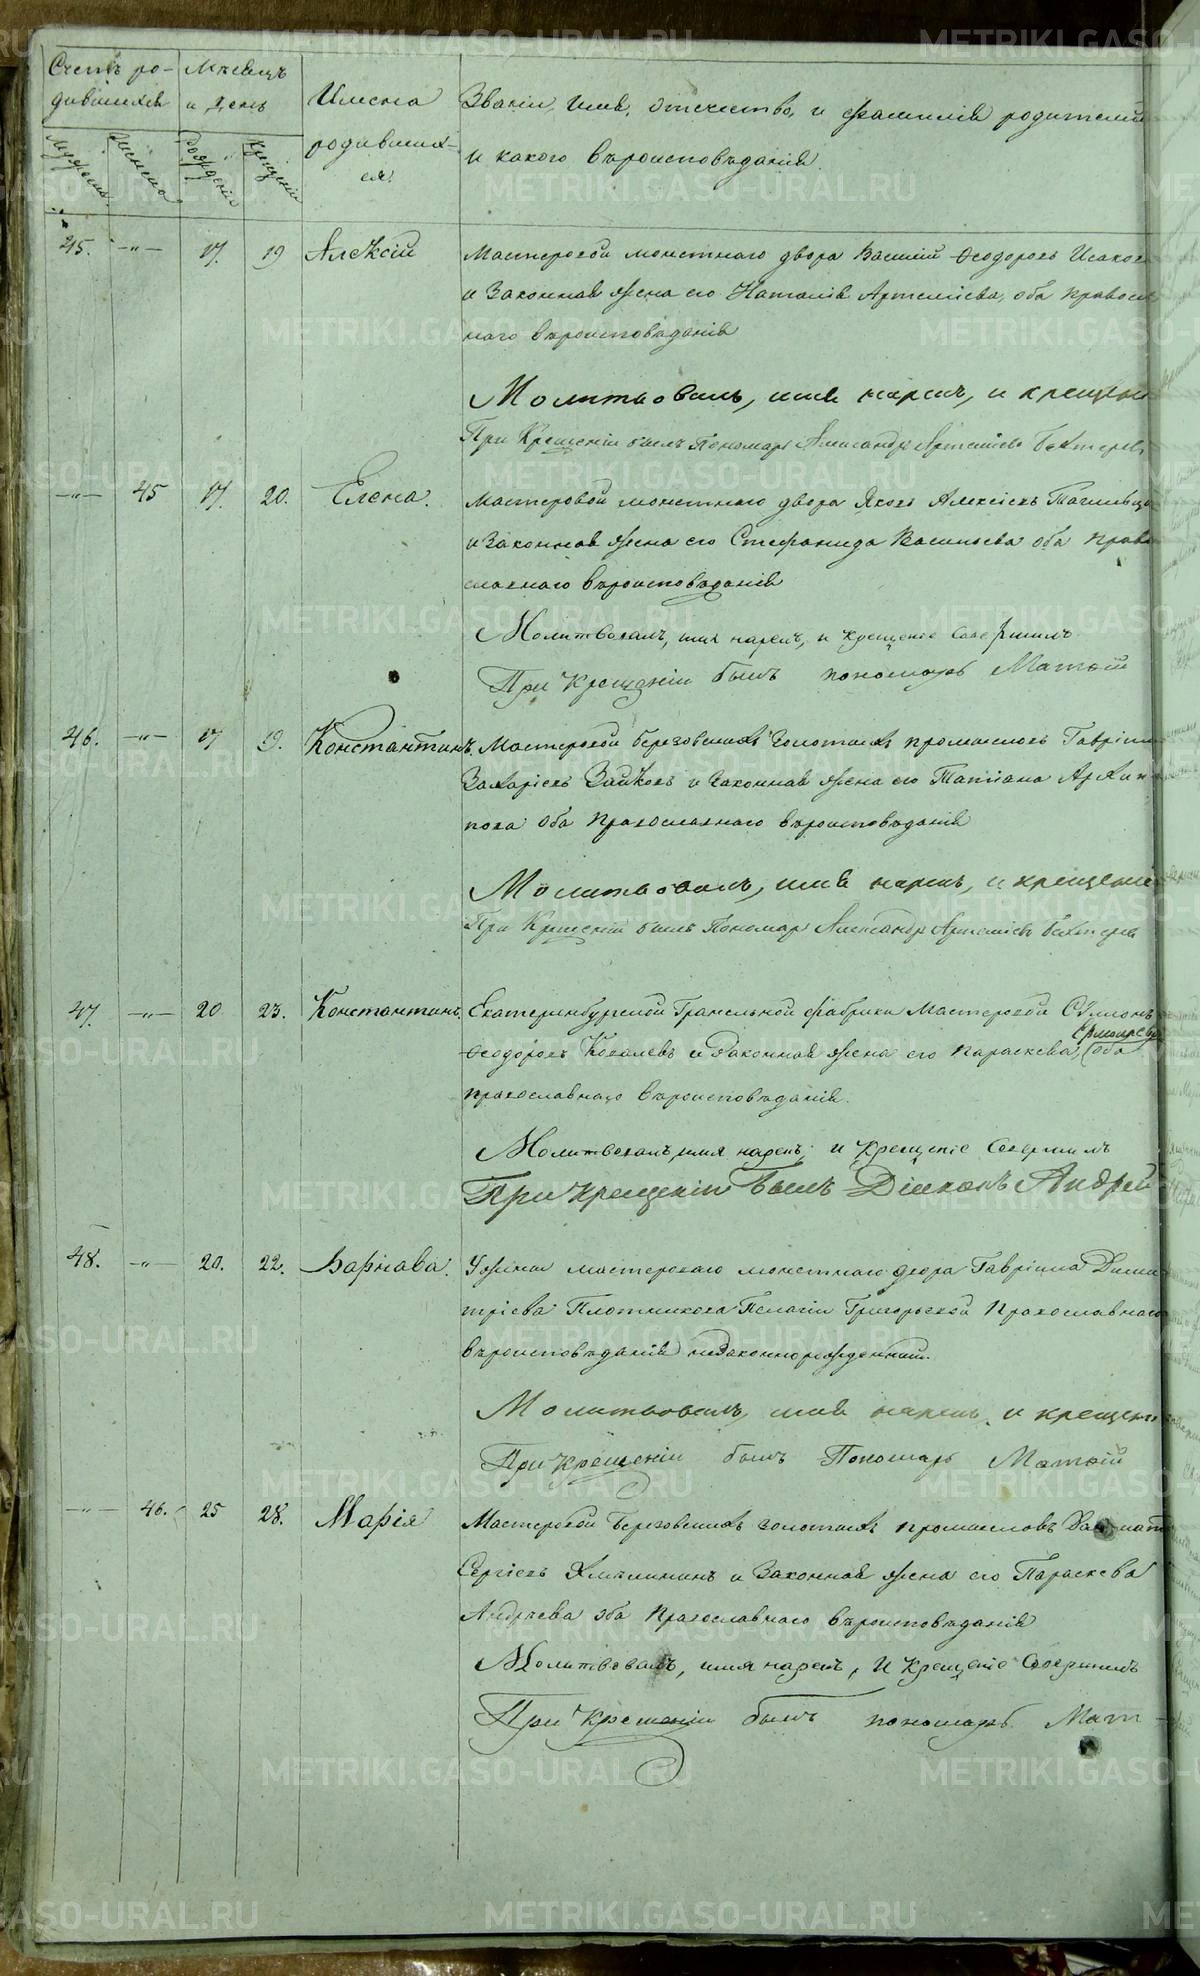 Счетъ ро-
дившихся
Мѣсяцъ
и день
Имена
родивших-
ся.
Званіе, имя, отечество, и фамилія родителей
и какого вѣроисповѣданія.
Мужеска
Женска
Рожденія
Крещенія
45. —"— 17. 19 Алексій Мастеровой монетнаго двора Василій Ѳеодоровъ Исаков
и Законная жена его Наталія Артеміева, оба правосл
наго вѣроисповѣданія
Молитвовалъ, имя нарекъ, и крещеніе
При Крещеніи былъ Пономарь Александръ Артеміевъ Бехтерев
—"— 45 17. 20. Елена. Мастеровой монетнаго двора Яковъ Алексіевъ
и Законная жена его Стефанида Васильева оба право
славнаго вѣроисповѣданія
Молитвовалъ, имя нарекъ, и крещеніе совершилъ
При крещеніи былъ пономарь Матѳій
46. —"— 17 19. Константинъ. Мастеровой березовскихъ золотыхъ промысловъ Гавріилъ
Захаріевъ Зайковъ и Законная жена его Татіана Архип
пова оба Православнаго вѣроисповѣданія
Молитвовалъ, имя нарекъ, и крещеніе
При Крещеніи былъ Пономарь Александръ Артеміевъ Бехтерев
47. —"— 20 23. Константинъ. Екатеринбургской Гранильной фабрики Мастеровой Сѵмеонъ
Ѳеодоровъ Ковалевъ и Законная жена его Параскева, оба
православнаго вѣроисповѣданія.
Молитвовалъ, имя нарекъ, и Крещеніе Совершилъ
При крещеніи былъ Діаконъ Андрей
48. —"— 20. 22. Варнава. У жены мастероваго монетнаго двора Гавріила Дими
тріева Плотникова Пелагіи Григорьевой Православнаго
вѣроисповѣданія незаконнорожденный.
Молитвовалъ, имя нарекъ, и крещені
При крещеніи былъ Пономарь Матѳій
—"— 46. 25 28. Марія Мастеровой Березовскихъ золотыхъ промысловъ
Сергіевъ Хмѣлининъ и Законная жена его Параскева
Андрѣева оба Православнаго вѣроисповѣданія
Молитвовалъ, имя нарекъ, и Крещеніе Совершилъ
При Крещеніи былъ пономарь Мат